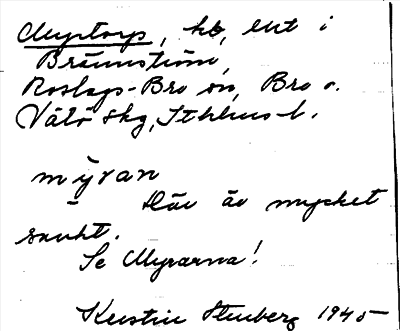 Myrtorp, hb, ut i
Brännström,
Roslags-Bro sn, Bro o.
Vätö skg, Sthlms l.
myran
Här är mycket
sankt.
Se Myrarna!
Kerstin Stenberg 1945